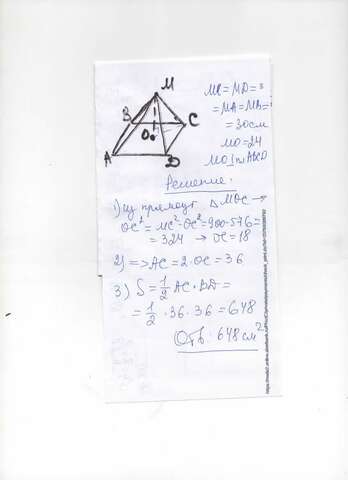 M
B
C
O
A
D
MC = MD =
= MA = MB =
= 30 см
MO = 24
MO ⊥ пл ABCD
Решение.
1) из прямоуг. △ MOC →
OC² = MC² - OC² = 900 - 576 =
= 324 → OC = 18
2) => AC = 2 · OC = 36
3) S = 1/2 AC · BD =
= 1/2 · 36 · 36 = 648
Отв: 648 см²